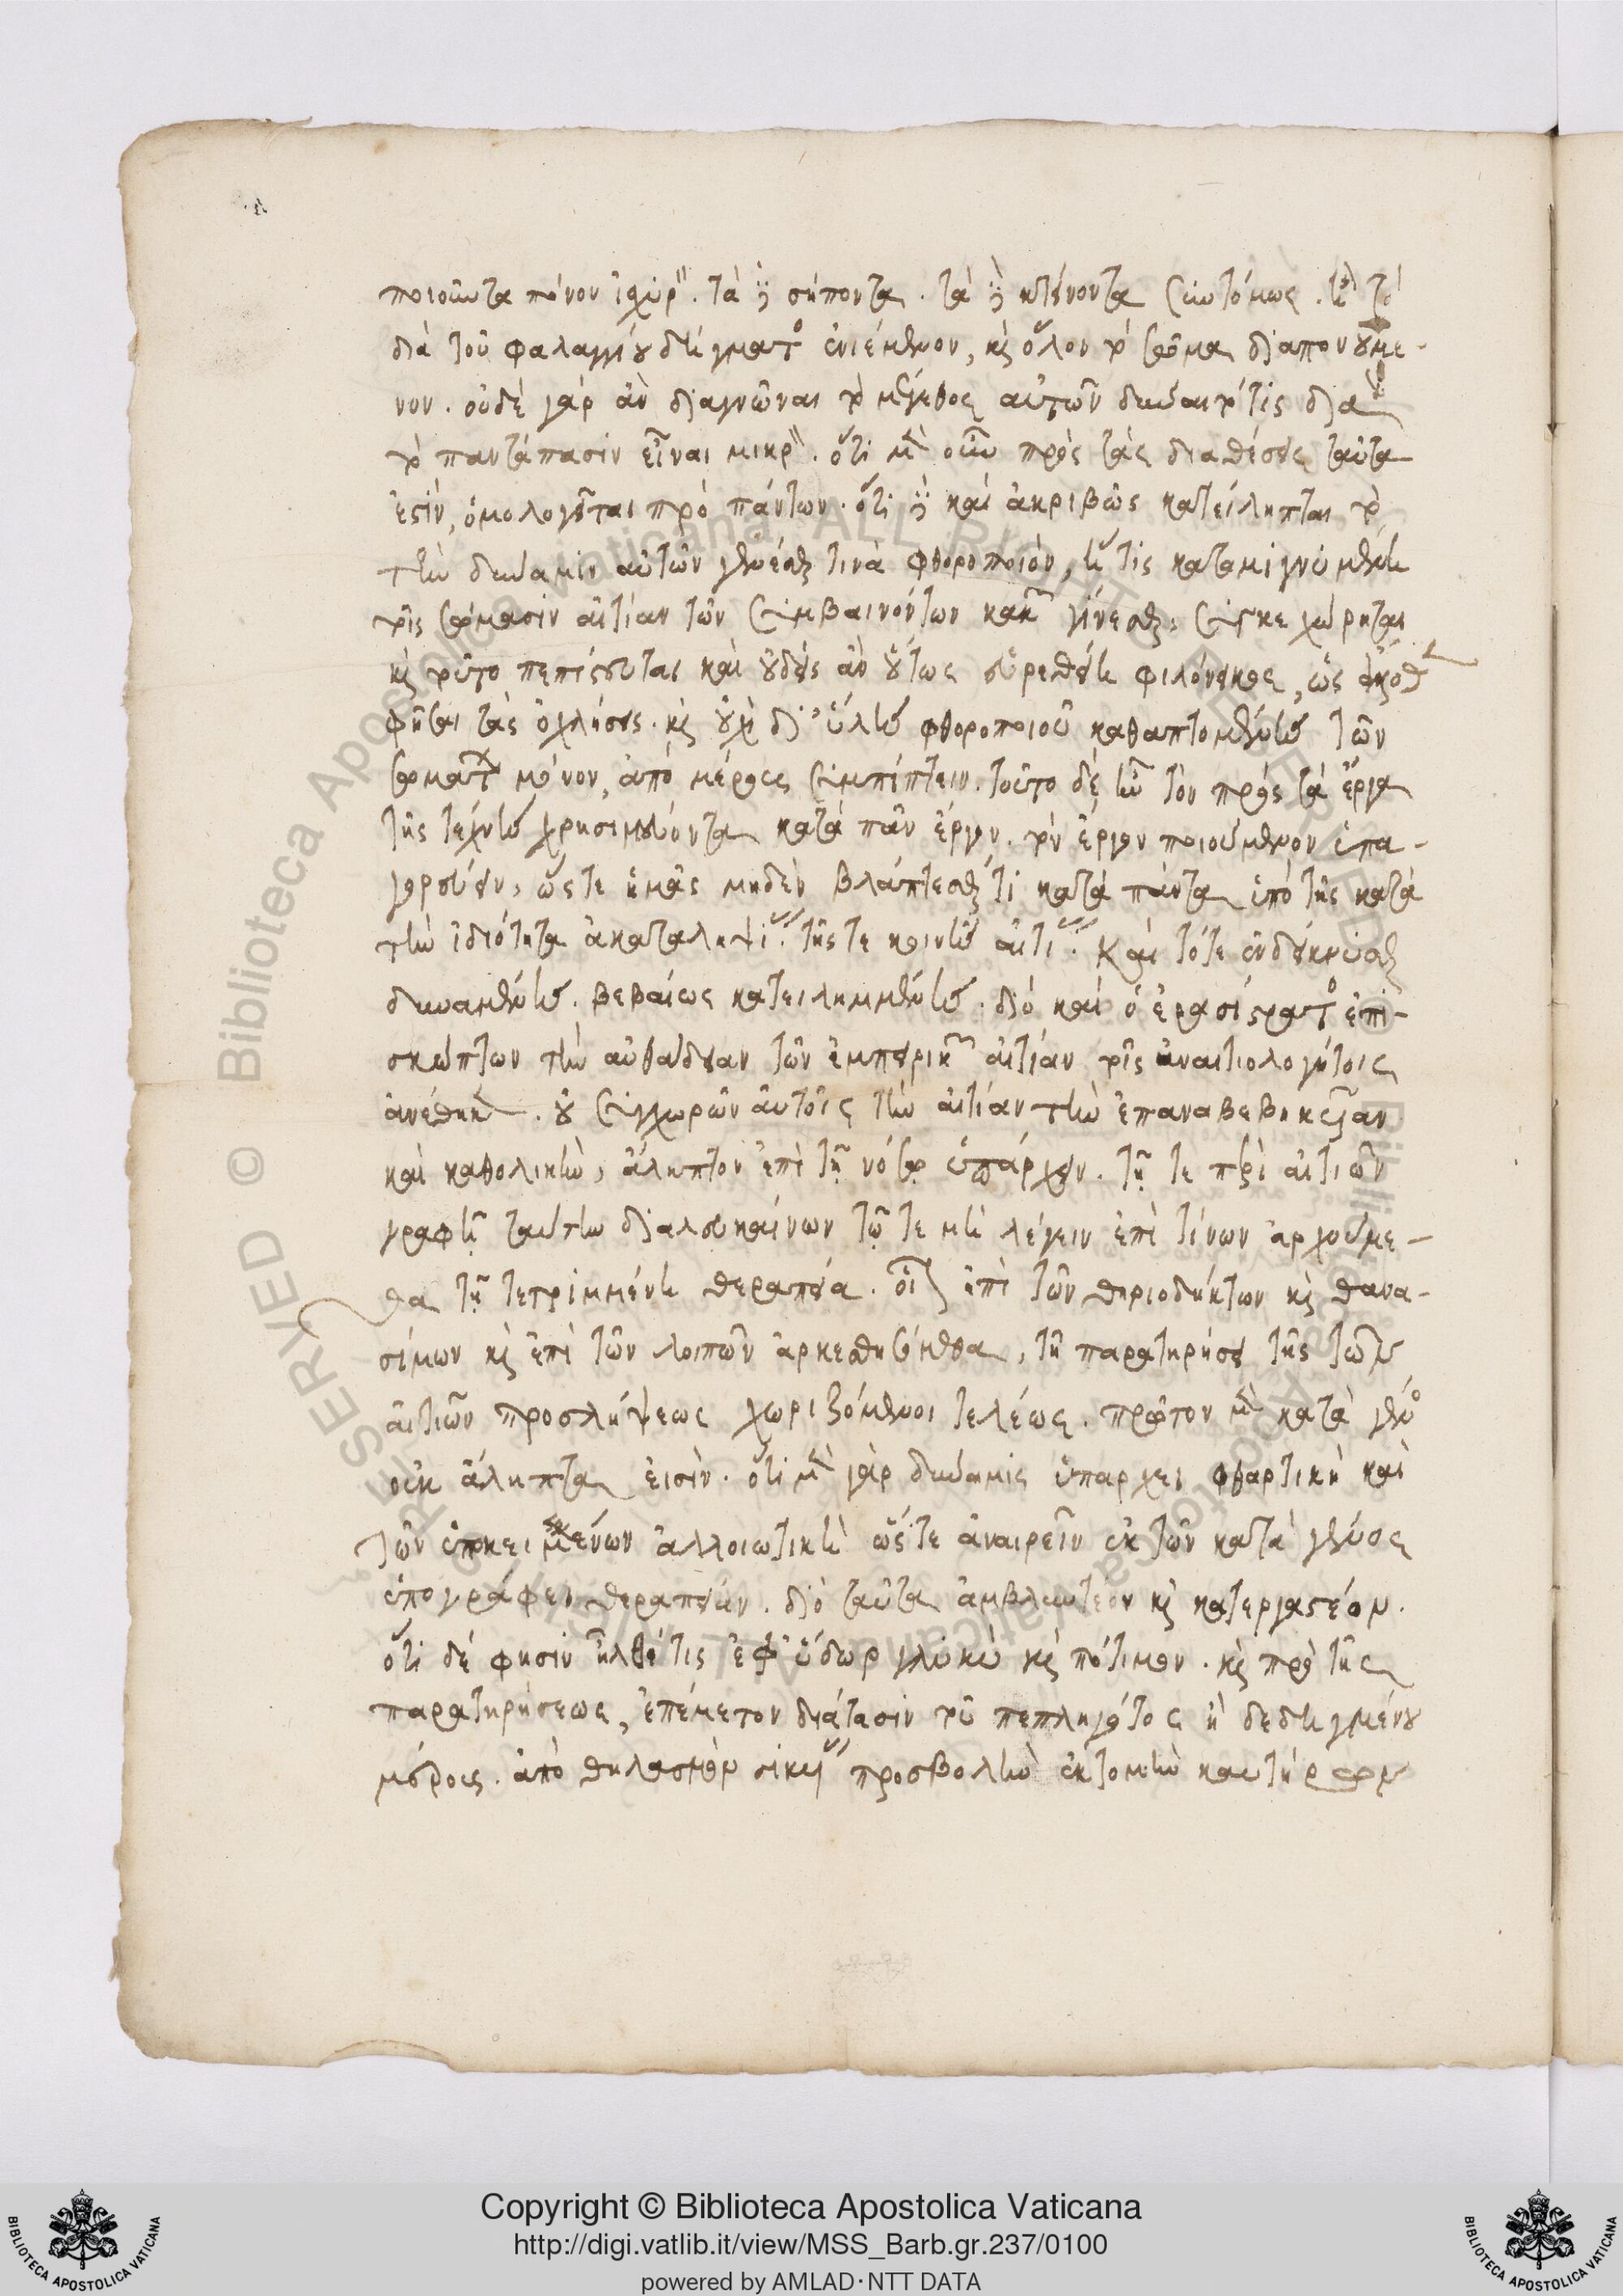 ποιοῦντα πόνον ἰσχυρ. τὰ δὲ σήποντα. τὰ δὲ κτείνοντα συντόμως.
διὰ τοῦ φαλαγγίου δήγματος ἐνιέμενον, καὶ ὅλον τὸ σῶμα διαπονούμε-
νον. οὐδὲ γὰρ ἂν διαγνῶναι τὸ μέγεθος αὐτῶν δύναιτό τις διὰ
τὸ παντάπασιν εἶναι μικρὰ. ὅτι μὲν οὖν πρὸς τὰς διαθέσεις ταῦτα
ἐστὶν, ὁμολογεῖται πρὸ πάντων. ὅτι δὲ καὶ ἀκριβῶς κατείληπται τὸ
τὴν δύναμιν αὐτῶν γενέσθαι τινὰ φθοροποιὸν, ἥτις καταμιγνυμένη
τοῖς σώμασιν αἰτίαν τῶν συμβαινόντων κακῶν γίνεσθαι, συγκεχώρηται
καὶ τοῦτο πεπίστευται καὶ οὐδεὶς ἂν οὕτως εὑρεθείη φιλόνεικος, ὡς
φῆσαι τὰς ὀχλήσεις. καὶ οὐχὶ δι' ὕλης φθοροποιοῦ καθαπτομένης τῶν
σωμάτων μόνον, ἀπὸ μέρους συμπίπτειν. τοῦτο δὲ ἦν τὸν πρὸς τὰ ἔργα
τῆς τέχνης χρησιμεύοντα κατὰ πᾶν ἔργον. τὸν ἔργον ποιούμενον ἐπα-
γορεύειν, ὥστε ἡμᾶς μηδὲν βλάπτεσθαί τι κατὰ πάντα ὑπὸ τῆς κατὰ
τὴν ἰδιότητα ἀκαταληψίας τῆς τε κοινῆς αἰτίας. καὶ τότε ἐνδείκνυσθαι
δυναμένης. βεβαίως κατειλημμένης. διὸ καὶ ὁ ἐρασίστρατος ἐπι-
σκώπτων τὴν αὐθάδειαν τῶν ἐμπειρικῶν αἰτίαν τοῖς ἀναιτιολογήτοις
ἀνέθηκεν. οὐ συγχωρῶν αὐτοῖς τὴν αἰτίαν τὴν ἐπαναβεβηκεῖαν
καὶ καθολικὴν, ἄληπτον ἐπὶ τῇ νόσῳ ὑπάρχειν. τῇ τε περὶ αἰτιῶν
γραφῇ ταύτην διαλευκαίνων τῷ τε μὴ λέγειν ἐπὶ τίνων ἀρχούμε-
θα τῇ τετριμμένῃ θεραπείᾳ. ἐπὶ τῶν θηριοδήκτων καὶ θανα-
σίμων καὶ ἐπὶ τῶν λοιπῶν ἀρκεσθησόμεθα, τῇ παρατηρήσει τῆς τῶν
αἰτιῶν προσλήψεως χωριζόμενοι τελέως. πρῶτον μὲν κατὰ γένος
οὐκ ἄληπτα εἰσίν. ὅτι μὲν γὰρ δύναμις ὑπάρχει φθαρτικὴ καὶ
τῶν ὑποκειμένων ἀλλοιωτικὴ ὥστε ἀναιρεῖν ἐκ τῶν κατὰ γένους
ὑπογράφει θεραπείαν. διὸ ταῦτα ἀμβλυντέον καὶ κατεργαστέον.
ὅτι δέ φησιν ἦλθέ τις ἐφ' ὕδωρ γλυκὺ καὶ πότιμον. καὶ πρὸ τῆς
παρατηρήσεως, ἐπέμετον διάτασιν τοῦ πεπληγότος ἢ δεδηγμένου
μέρους. ἀπὸ θηλασμὸν σικυῶν προσβολὴν ἐκτομὴν καυτήρων